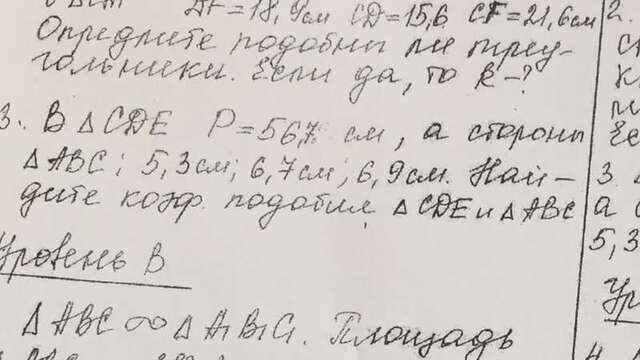 DF=18,9см CD=15,6 CF=21,6см 2.
Опредлите подобны ли треу-
гольники. Если да, то k-?
3. В △CDE P=56,7 см, а стороны
△ABC; 5,3см; 6,7см; 6,9см. Най- 3.
дите коэф. подобия △CDE и △ABC а
5,3
Уровень В
Ур
△ABC ∞ △A₁B₁C₁. Площадь